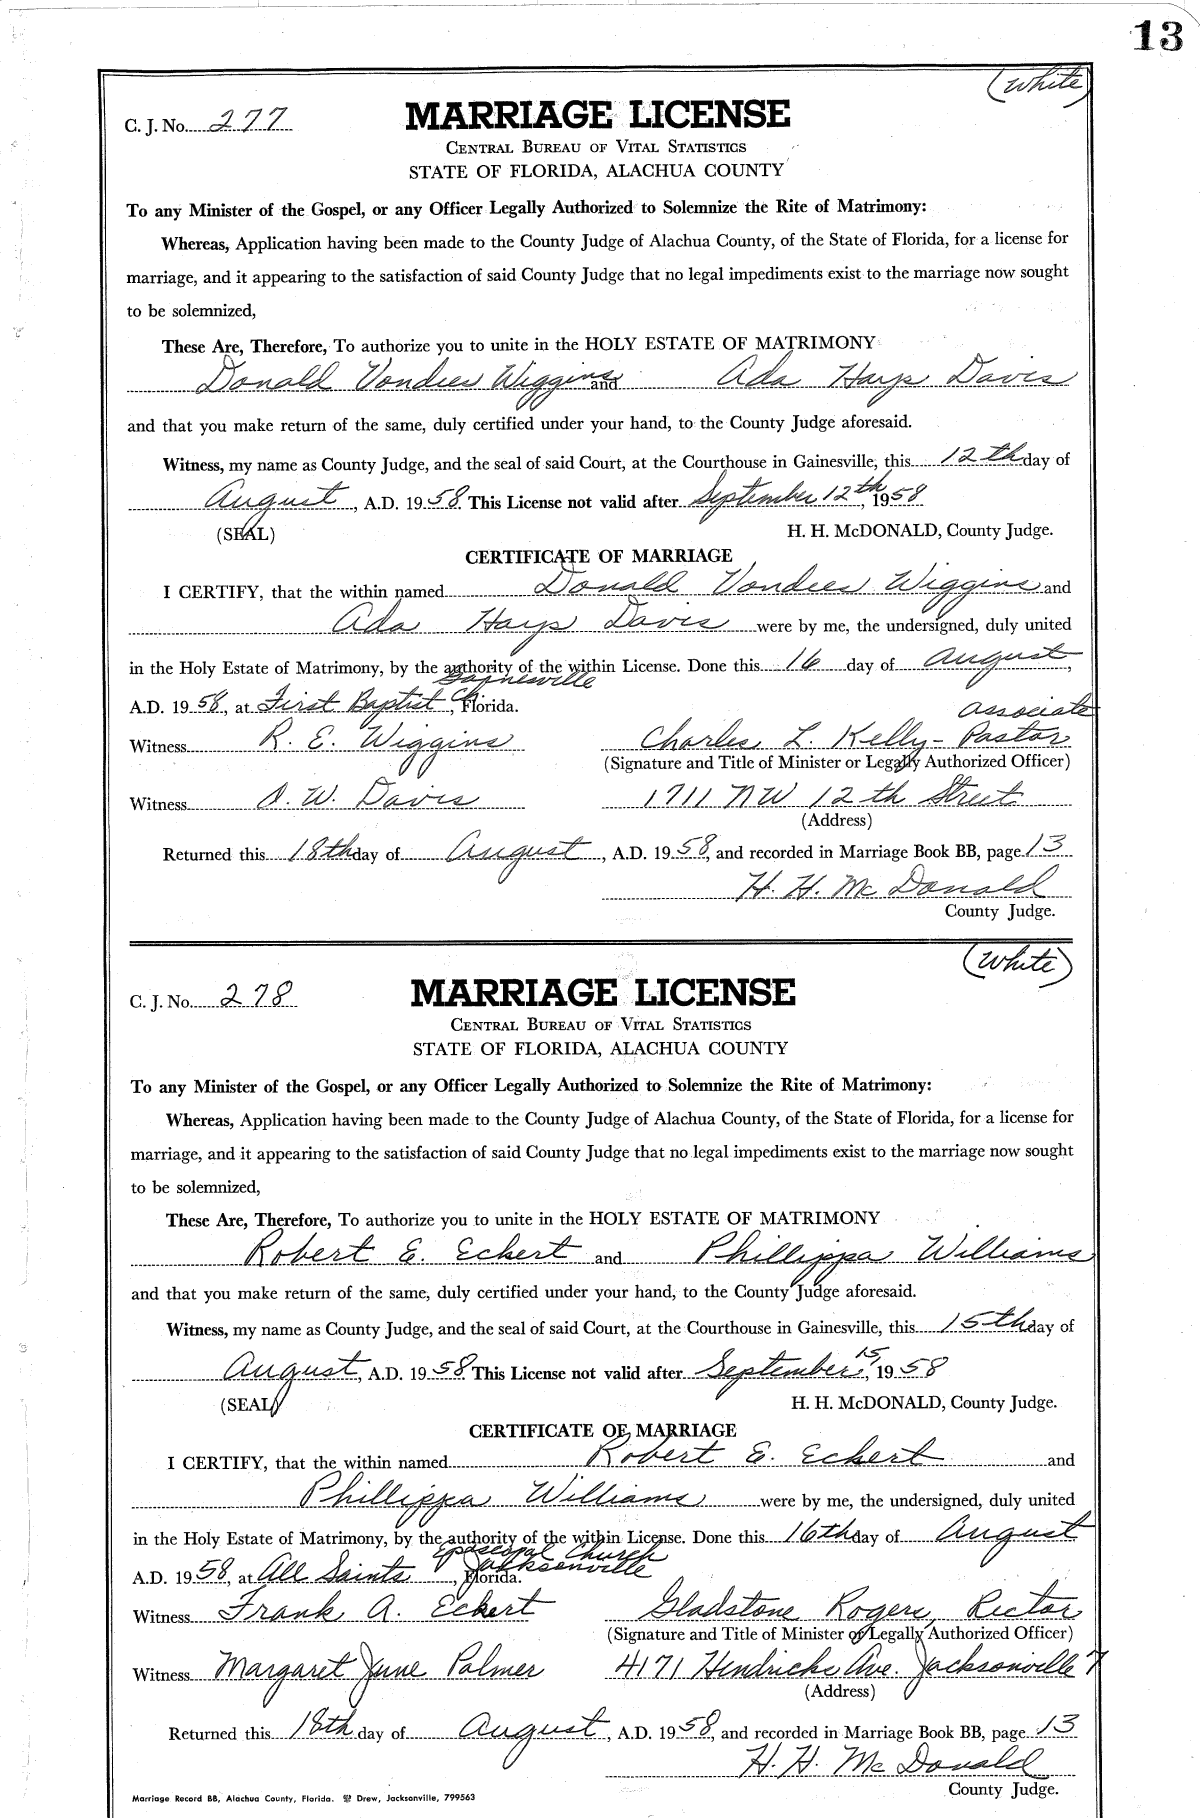 13
(White)
C. J. No. 277 MARRIAGE LICENSE
CENTRAL BUREAU OF VITAL STATISTICS
STATE OF FLORIDA, ALACHUA COUNTY
To any Minister of the Gospel, or any Officer Legally Authorized to Solemnize the Rite of Matrimony:
Whereas, Application having been made to the County Judge of Alachua County, of the State of Florida, for a license for
marriage, and it appearing to the satisfaction of said County Judge that no legal impediments exist to the marriage now sought
to be solemnized,
These Are, Therefore, To authorize you to unite in the HOLY ESTATE OF MATRIMONY
Donald Vondies Wiggins and Ada Hays Davis
and that you make return of the same, duly certified under your hand, to the County Judge aforesaid.
Witness, my name as County Judge, and the seal of said Court, at the Courthouse in Gainesville, this 12th day of
August, A.D. 1958. This License not valid after September 12th, 1958
(SEAL) H. H. McDONALD, County Judge.
CERTIFICATE OF MARRIAGE
I CERTIFY, that the within named Donald Vondies Wiggins and
Ada Hays Davis were by me, the undersigned, duly united
in the Holy Estate of Matrimony, by the authority of the within License. Done this 16 day of August,
Gainesville
A.D. 1958, at First Baptist Ch, Florida.
Associate
Witness R. E. Wiggins Charles L. Kelly - Pastor
(Signature and Title of Minister or Legally Authorized Officer)
Witness A. W. Davis 1711 NW 12th Street
(Address)
Returned this 18th day of August, A.D. 1958, and recorded in Marriage Book BB, page 13
H. H. McDonald
County Judge.
(White)
C. J. No. 278 MARRIAGE LICENSE
CENTRAL BUREAU OF VITAL STATISTICS
STATE OF FLORIDA, ALACHUA COUNTY
To any Minister of the Gospel, or any Officer Legally Authorized to Solemnize the Rite of Matrimony:
Whereas, Application having been made to the County Judge of Alachua County, of the State of Florida, for a license for
marriage, and it appearing to the satisfaction of said County Judge that no legal impediments exist to the marriage now sought
to be solemnized,
These Are, Therefore, To authorize you to unite in the HOLY ESTATE OF MATRIMONY
Robert E. Eckert and Phillippa Williams
and that you make return of the same, duly certified under your hand, to the County Judge aforesaid.
Witness, my name as County Judge, and the seal of said Court, at the Courthouse in Gainesville, this 15th day of
August, A.D. 1958. This License not valid after September 15, 1958
(SEAL) H. H. McDONALD, County Judge.
CERTIFICATE OF MARRIAGE
I CERTIFY, that the within named Robert E. Eckert and
Phillippa Williams were by me, the undersigned, duly united
in the Holy Estate of Matrimony, by the authority of the within License. Done this 16th day of August
Episcopal Church
Jacksonville
A.D. 1958, at All Saints, Florida.
Witness Frank A. Eckert Gladstone Rogers, Rector
(Signature and Title of Minister or Legally Authorized Officer)
Witness Margaret June Palmer 4171 Hendricks Ave. Jacksonville 7
(Address)
Returned this 18th day of August, A.D. 1958, and recorded in Marriage Book BB, page 13
H. H. McDonald
County Judge.
Marriage Record BB, Alachua County, Florida. Drew, Jacksonville, 799563